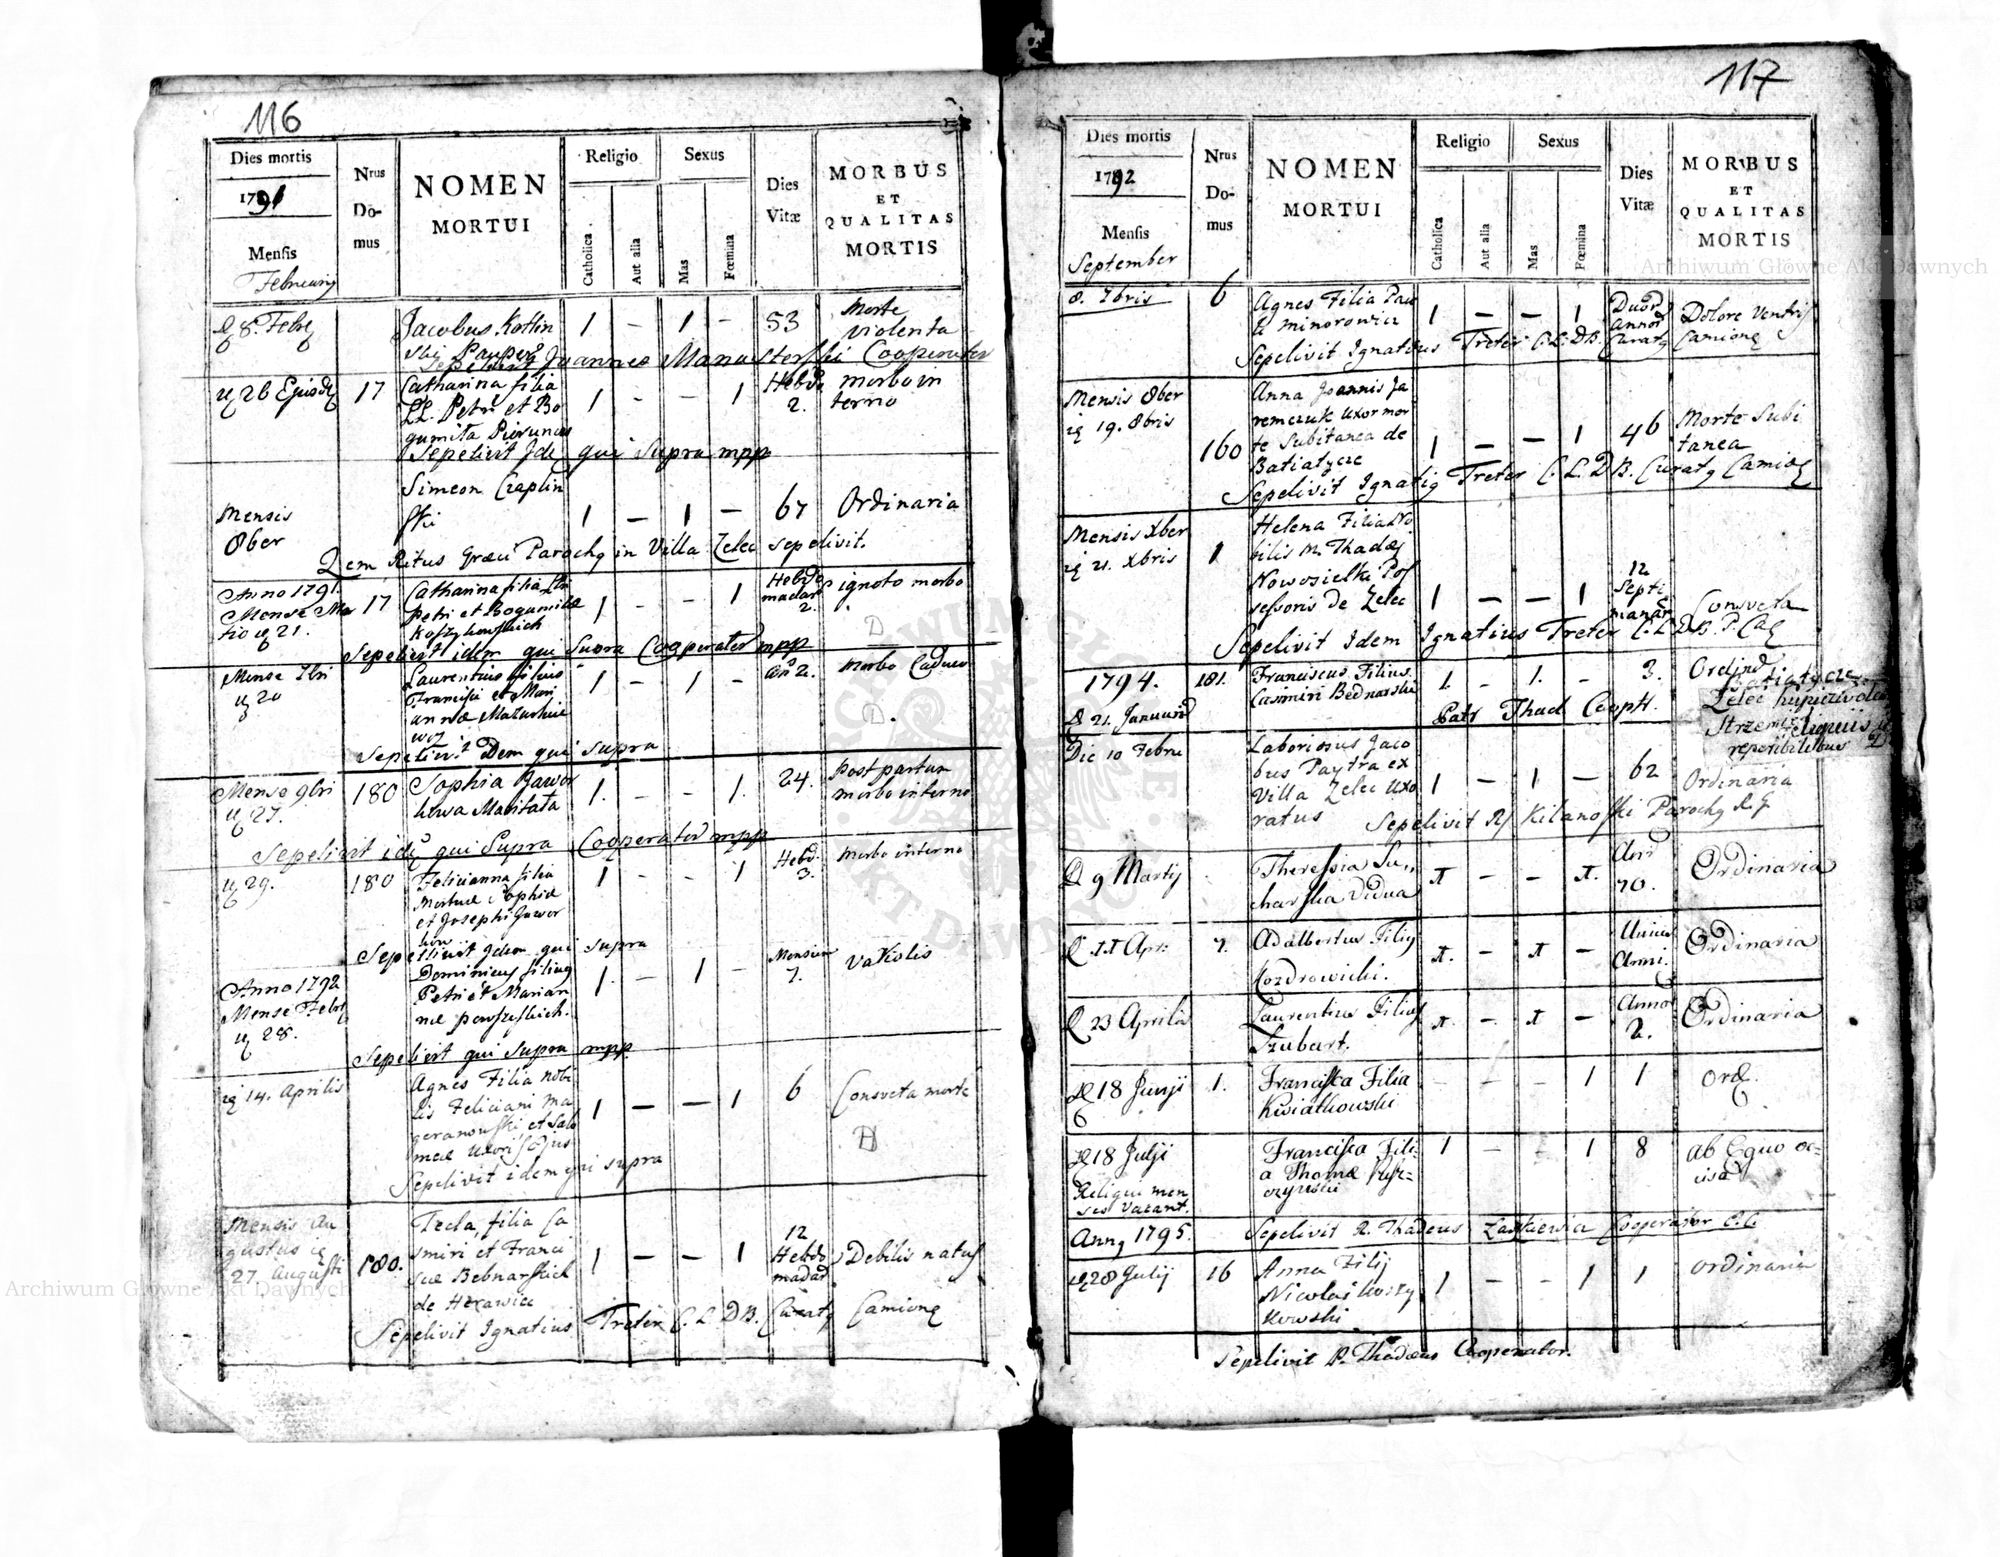 116
Dies mortis
1791
Mensis
Februarij
Nrus
Do-
mus
NOMEN
MORTUI
Religio
Catholica
Aut alia
Sexus
Mas
Fœmina
Dies
Vitæ
MORBUS
ET
QUALITAS
MORTIS
8. Febr
Jacobus Kotlin
ski Pauper
1 – 1 – 53
Morte
violenta
Sepelivit Joannes Cooperator
26 Ejusd
17
Catharina filia
LL. Petri et Bo
gumila
1 – – 1
Hebd
2.
morbo in
terno
Sepelivit Idem qui Supra mpp
Mensis
8ber
Simeon Czaplin
ski
1 – 1 – 67
Ordinaria
Quem Ritus Græci Parochus in Villa Zelec sepelivit.
Anno 1791
Mense Ma
tio 21.
17
Catharina filia
Petri et Bogumilæ
Koszykowskich
1 – – 1
Hebdo
madar
2.
ignoto morbo
D
Sepelivit idem qui Supra Cooperator mpp
Mense 7bri
20
Laurentius filius
Francisci et Mari
annæ Mazurkie
wicz
1 – 1 –
an 2.
Morbo Caduco
D.
Sepelivit Idem qui supra
Mense 9bri
27.
180
Sophia Jawor
kowa Maritata
1. – – 1.
24.
Post partum
morbo interno
Sepelivit idem qui Supra Cooperator mpp
29.
180
Felicianna filia
Mortuæ Sophiæ
et Josephi Jawor
kow
1 – – 1
Hebd.
3.
Morbo interno
Sepelivit Idem qui supra
Anno 1792
Mense Febr
28.
Dominicus filius
Petri et Marian
næ
1. – 1 –
Mensium
7.
Variolis
Sepelivit qui supra mpp
14. Aprilis
Agnes Filia nobi
lis Feliciani Ma
geranowski et Salo
meæ Uxoris ejus
1 – – 1
6
Consveta morte
D
Sepelivit idem qui supra
Mensis Au
gustus
27 Augusti
180.
Tecla, filia Ca
simiri et Franci
scæ Bednarskich
de
1 – – 1
12
Hebdo
madar
Debilis natus
Sepelivit Ignatius Treter C. L. D B. Curatus Camionæ
117
Dies mortis
1792
Mensis
September
Nrus
Do-
mus
NOMEN
MORTUI
Religio
Catholica
Aut alia
Sexus
Mas
Fœmina
Dies
Vitæ
MORBUS
ET
QUALITAS
MORTIS
8. 7bris
6
Agnes Filia Pau
li Minorowicz
1 – – 1
Duor
annor
Dolore Ventris
Sepelivit Ignatius Treter C. L. DB. Curatus Camionæ
Mensis 8ber
19. 8bris
160
Anna Joannis Ja
remczuk uxor mor
te Subitanea de
Batiatycze
1 – – 1
46
Morte Subi
tanea
Sepelivit Ignatius Treter C. L. D B. Curatus Camionæ
Mensis Xber
21. Xbris
1
Helena Filia No
bilis M. Thadæi
Nowosielski Pos
sessoris de Zelec
1 – – 1
12
Septi
manar
Consveta
Sepelivit Idem Ignatius Treter C. L. D B. P. Ca
1794.
21. Januarii
181.
Franciscus Filius
Casimiri Bednarski
1. – 1. –
3.
Ordin
Patr Thad Coop
Batiatycze
Zelec
reperibilibus
Die 10 Febru
Laboriosus Jaco
bus Paytra ex
Villa Zelec Uxo
ratus
1 – 1 –
62
Ordinaria
Sepelivit Kilanoski Parochus R. G.
9 Martij
Theressia Su,,
charska Vidua
1 – – 1.
Ann
70.
Ordinaria
11 Apr:
7.
Adalbertus Filius
Kozdrowicki.
1. – 1 –
Unius
Anni.
Ordinaria
23 Aprilis
Laurentius Filius
Szubart.
1. – 1 –
Anno
2.
Ordinaria
18 Junji
1.
Francisca Filia
Kwiatkowski
– – 1
1
Ord.
18 Julji
Francisca Fili=
a Thomæ
1 – – 1
8
Ab Equo oc=
cisa
Reliqui men
ses Vacant.
Anno 1795.
Sepelivit R. Thadeus Laskiewicz Cooperator C. C.
28 Julij
16
Anna Filij
Nicolai Koszy
kowski
1 – – 1
1
Ordinaria
Sepelivit P. Thadæus Cooperator.
Archiwum Główne Akt Dawnych
Archiwum Główne Akt Dawnych
ARCHIWUM GŁÓWNE
AKT DAWNYCH